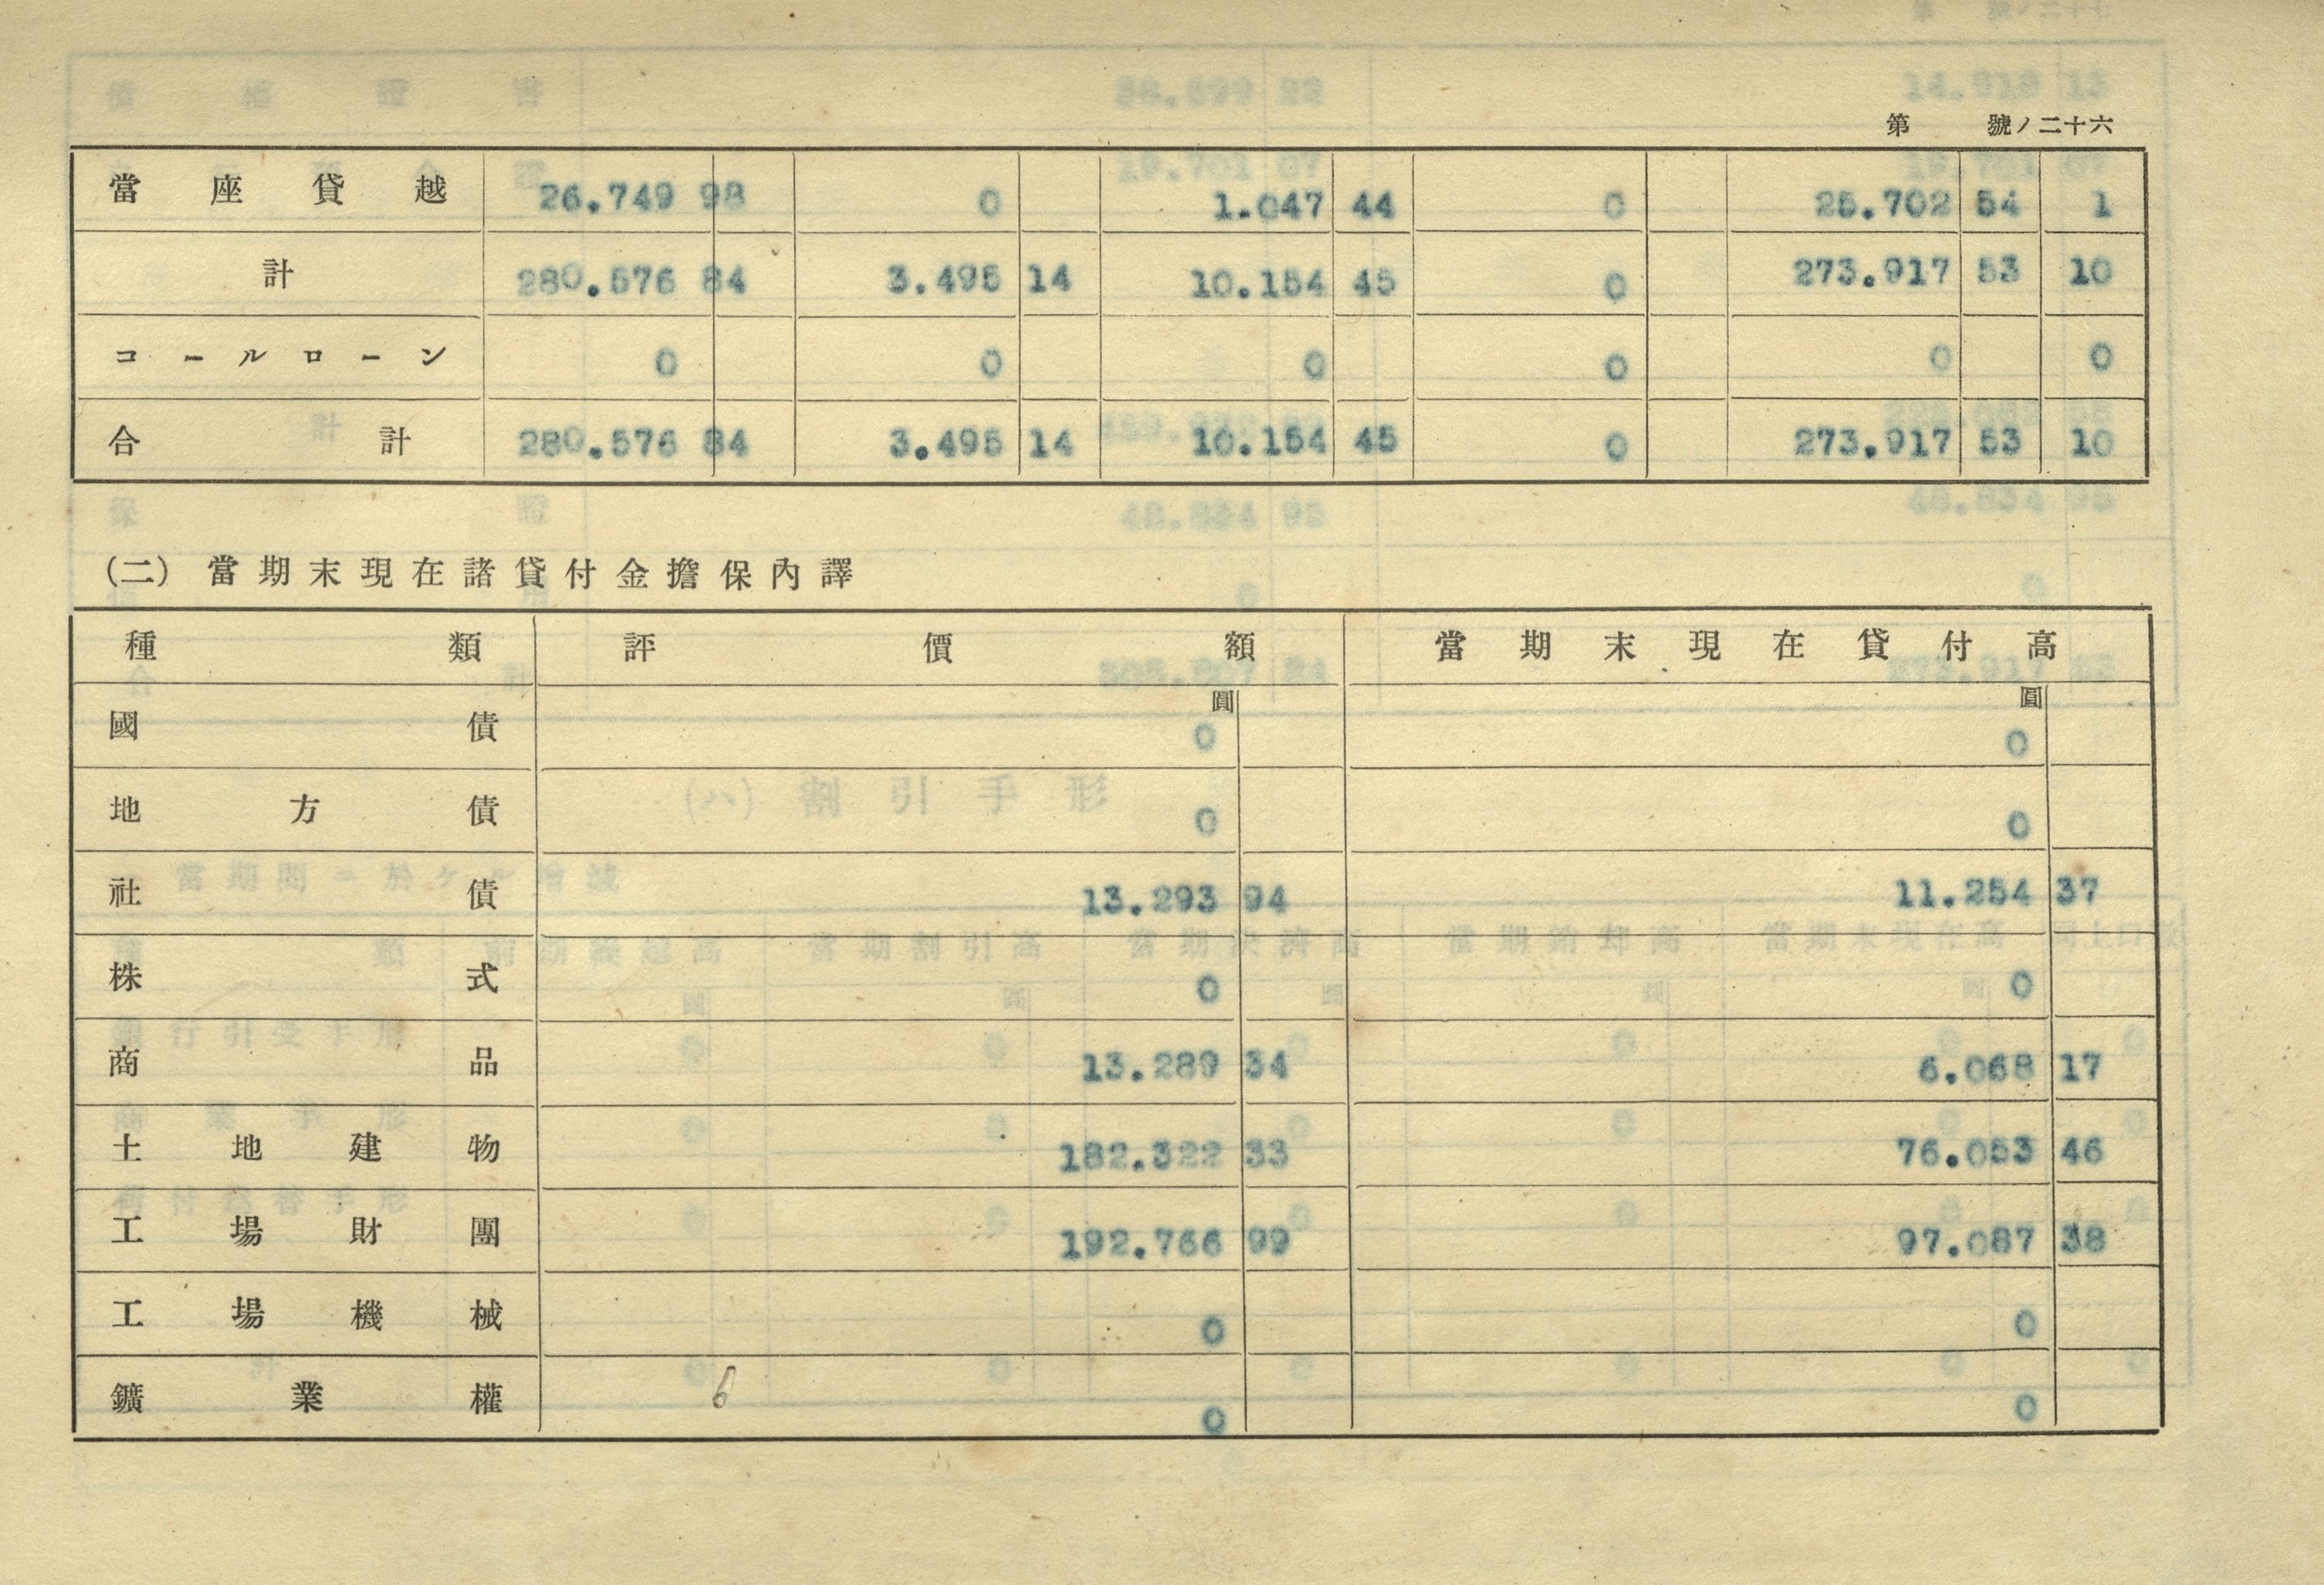 第 號ノ二十六
當座貸越 26.749 98 0 1.047 44 0 25.702 54 1
計 280.576 84 3.495 14 10.154 45 0 273.917 53 10
コールローン 0 0 0 0 0 0
合計 280.576 84 3.495 14 10.154 45 0 273.917 53 10
(二) 當期末現在諸貸付金擔保內譯
種類 評價額 當期末現在貸付高
圓 圓
國債 0 0
地方債 0 0
社債 13.293 94 11.254 37
株式 0 0
商品 13.289 34 6.068 17
土地建物 182.322 33 76.053 46
工場財團 192.766 99 97.087 38
工場機械 0 0
鑛業權 6 0 0